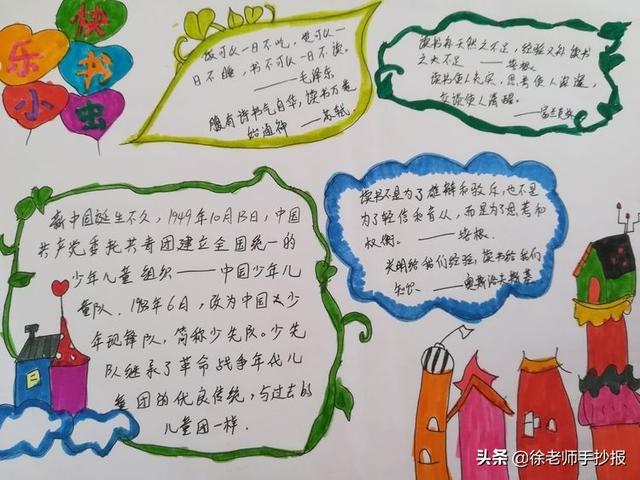 快
乐书
小虫
饭可以一日不吃，觉可以一
日不睡，书不可以一日不读。
——毛泽东
腹有诗书气自华，读书万卷
始通神 ——苏轼
读书补天然之不足，经验又补读书
之不足 ——培根。
读书使人充实，思考使人深邃，
交谈使人清醒。
——富兰克林
新中国诞生不久，1949年10月13日，中国
共产党委托共青团建立全国统一的
少年儿童组织——中国少年儿
童队．1953年6月，改为中国
年先锋队，简称少先队。少先
队继承了革命战争年代儿
童团的优良传统，与过去的
儿童团一样．
读书不是为了雄辩和驳斥，也不是
为了轻信和盲从，而是为了思考和
权衡。 ——培根．
光明给我们经验，读书给我们
知识． ——奥斯洛夫斯基
头条 @徐老师手抄报